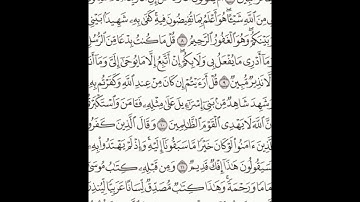 مِنَ ٱللَّهِ شَيْـًٔا هُوَ أَعْلَمُ بِمَا تُفِيضُونَ فِيهِ كَفَىٰ بِهِۦ شَهِيدًۢا بَيْنِى
بَيْنَكُمْ وَهُوَ ٱلْغَفُورُ ٱلرَّحِيمُ ٨ قُلْ مَا كُنتُ بِدْعًا مِّنَ ٱلرُّسُلِ
مَآ أَدْرِى مَا يُفْعَلُ بِى وَلَا بِكُمْ إِنْ أَتَّبِعُ إِلَّا مَا يُوحَىٰٓ إِلَىَّ وَمَآ أَنَا۠
لَّا نَذِيرٌ مُّبِينٌ ٩ قُلْ أَرَءَيْتُمْ إِن كَانَ مِنْ عِندِ ٱللَّهِ وَكَفَرْتُم بِهِۦ
شَهِدَ شَاهِدٌ مِّنۢ بَنِىٓ إِسْرَٰٓءِيلَ عَلَىٰ مِثْلِهِۦ فَـَٔامَنَ وَٱسْتَكْبَرْتُ
نَّ ٱللَّهَ لَا يَهْدِى ٱلْقَوْمَ ٱلظَّٰلِمِينَ ١٠ وَقَالَ ٱلَّذِينَ كَفَرُو
ذِينَ ءَامَنُوا۟ لَوْ كَانَ خَيْرًا مَّا سَبَقُونَآ إِلَيْهِ وَإِذْ لَمْ يَهْتَدُوا۟ بِهِۦ
سَيَقُولُونَ هَٰذَآ إِفْكٌ قَدِيمٌ ١١ وَمِن قَبْلِهِۦ كِتَٰبُ مُوسَىٰٓ
مَامًا وَرَحْمَةً وَهَٰذَا كِتَٰبٌ مُّصَدِّقٌ لِّسَانًا عَرَبِيًّا لِّيُنذِ